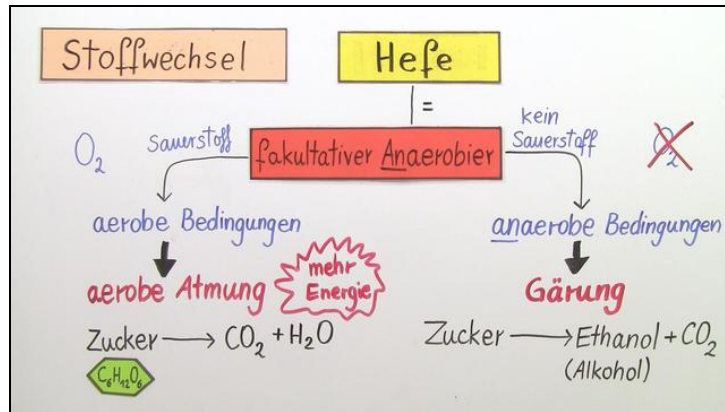 Stoffwechsel
Hefe
=
fakultativer Anaerobier
O₂
Sauerstoff
aerobe Bedingungen
aerobe Atmung
mehr
Energie
Zucker → CO₂ + H₂O
C₆H₁₂O₆
kein
Sauerstoff
O₂
anaerobe Bedingungen
Gärung
Zucker → Ethanol + CO₂
(Alkohol)